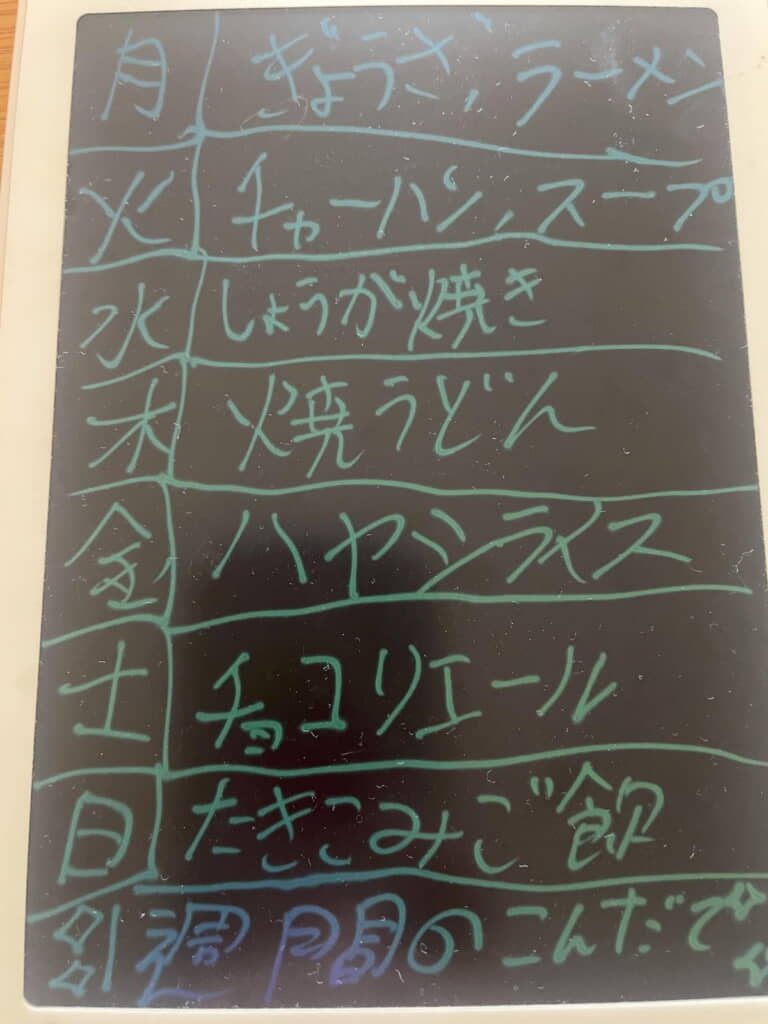 月 ぎょうざ，ラーメン
火 チャーハン，スープ
水 しょうが焼き
木 焼うどん
金 ハヤシライス
土 チョコリエール
日 たきこみご飲
1週間のこんだて